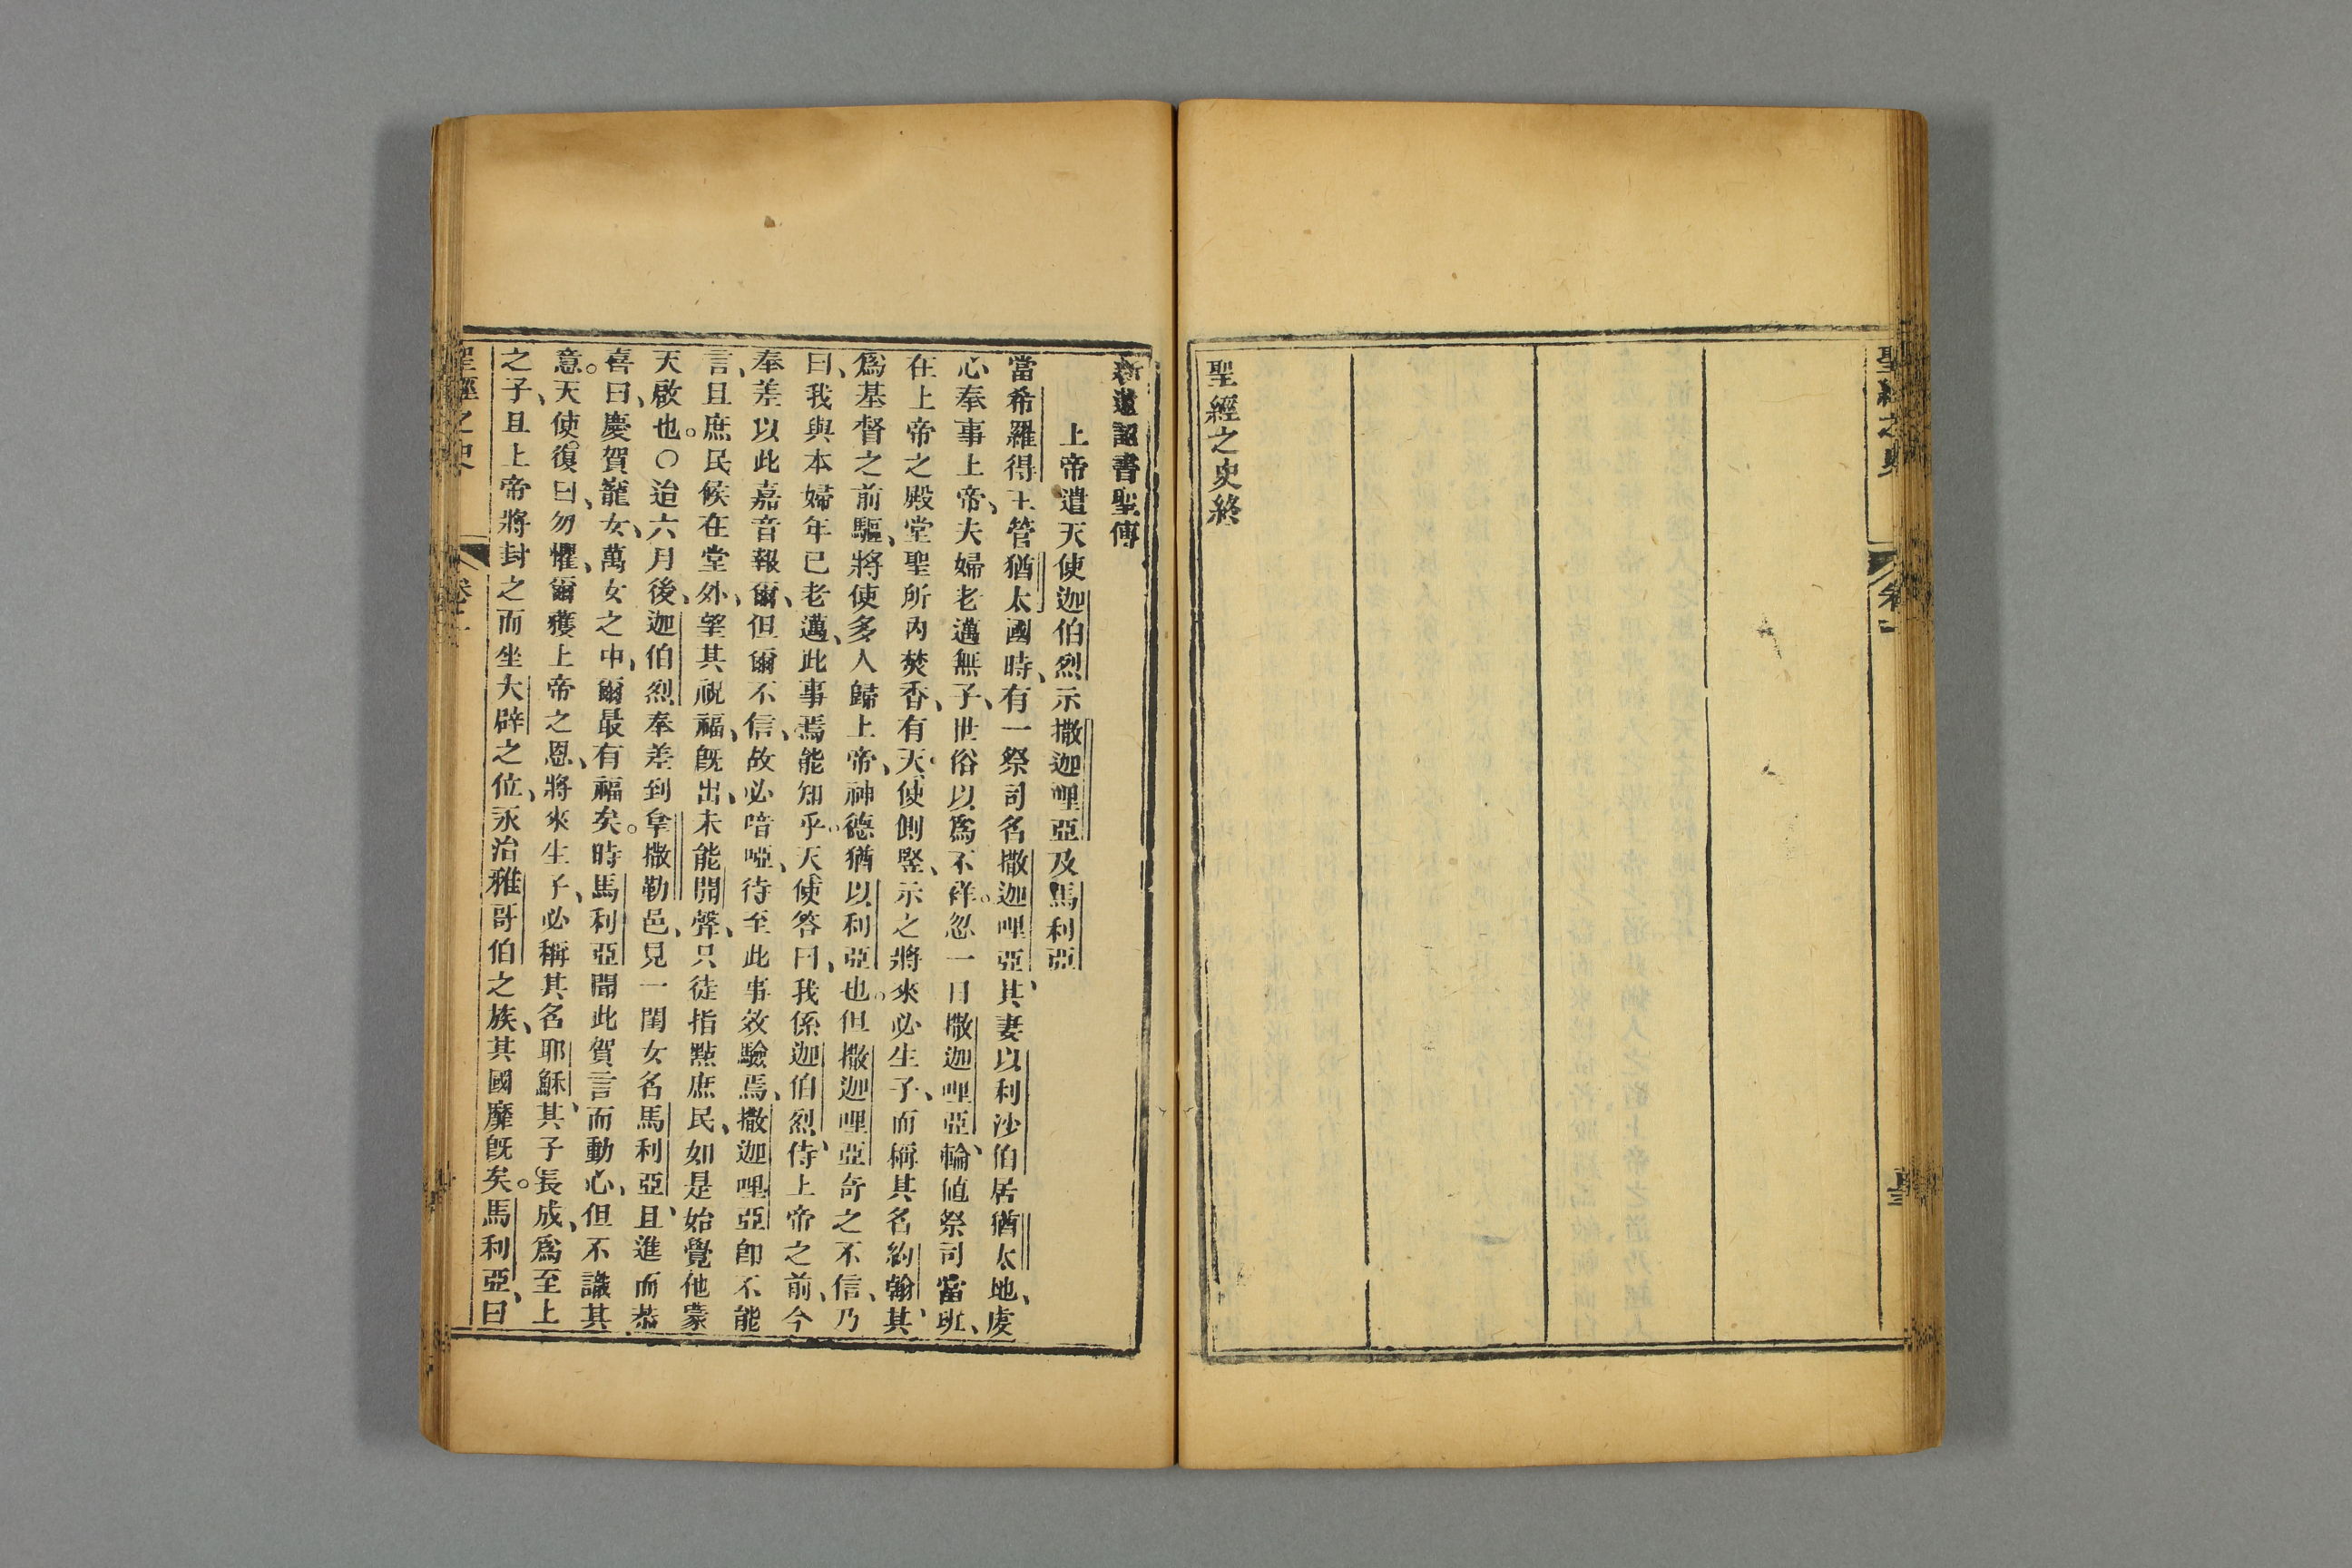 聖經之史
卷一
聖經之史終
新遺詔書聖傳
上帝遣天使迦伯烈示撒迦哩亞及馬利亞
當希羅得王管猶太國時、有一祭司名撒迦哩亞、其妻以利沙伯居猶太地、虔
心奉事上帝、夫婦老邁無子、世俗以爲不祥。忽一日撒迦哩亞、輪値祭司當班、
在上帝之殿堂聖所內焚香、有天使側竪、示之將來必生子、而稱其名約翰、其
爲基督之前驅、將使多人歸上帝、神德猶以利亞也。但撒迦哩亞奇之不信、乃
曰、我與本婦年已老邁、此事焉能知乎。天使答曰、我係迦伯烈、侍上帝之前、今
奉差以此嘉音報爾、但爾不信、故必喑啞、待至此事效驗焉、撒迦哩亞卽不能
言、且庶民候在堂外、望其祝福、旣出、未能開聲、只徒指點庶民、如是始覺他蒙
天啟也。〇迨六月後、迦伯烈奉差到拿撒勒邑、見一閨女名馬利亞、且進而恭
喜曰、慶賀寵女、萬女之中、爾最有福矣。時馬利亞聞此賀言而動心、但不識其
意。天使復曰、勿懼、爾獲上帝之恩、將來生子、必稱其名耶穌、其子長成、爲至上
之子、且上帝將封之而坐大辟之位、永治雅哥伯之族、其國靡旣矣。馬利亞曰
聖經之史